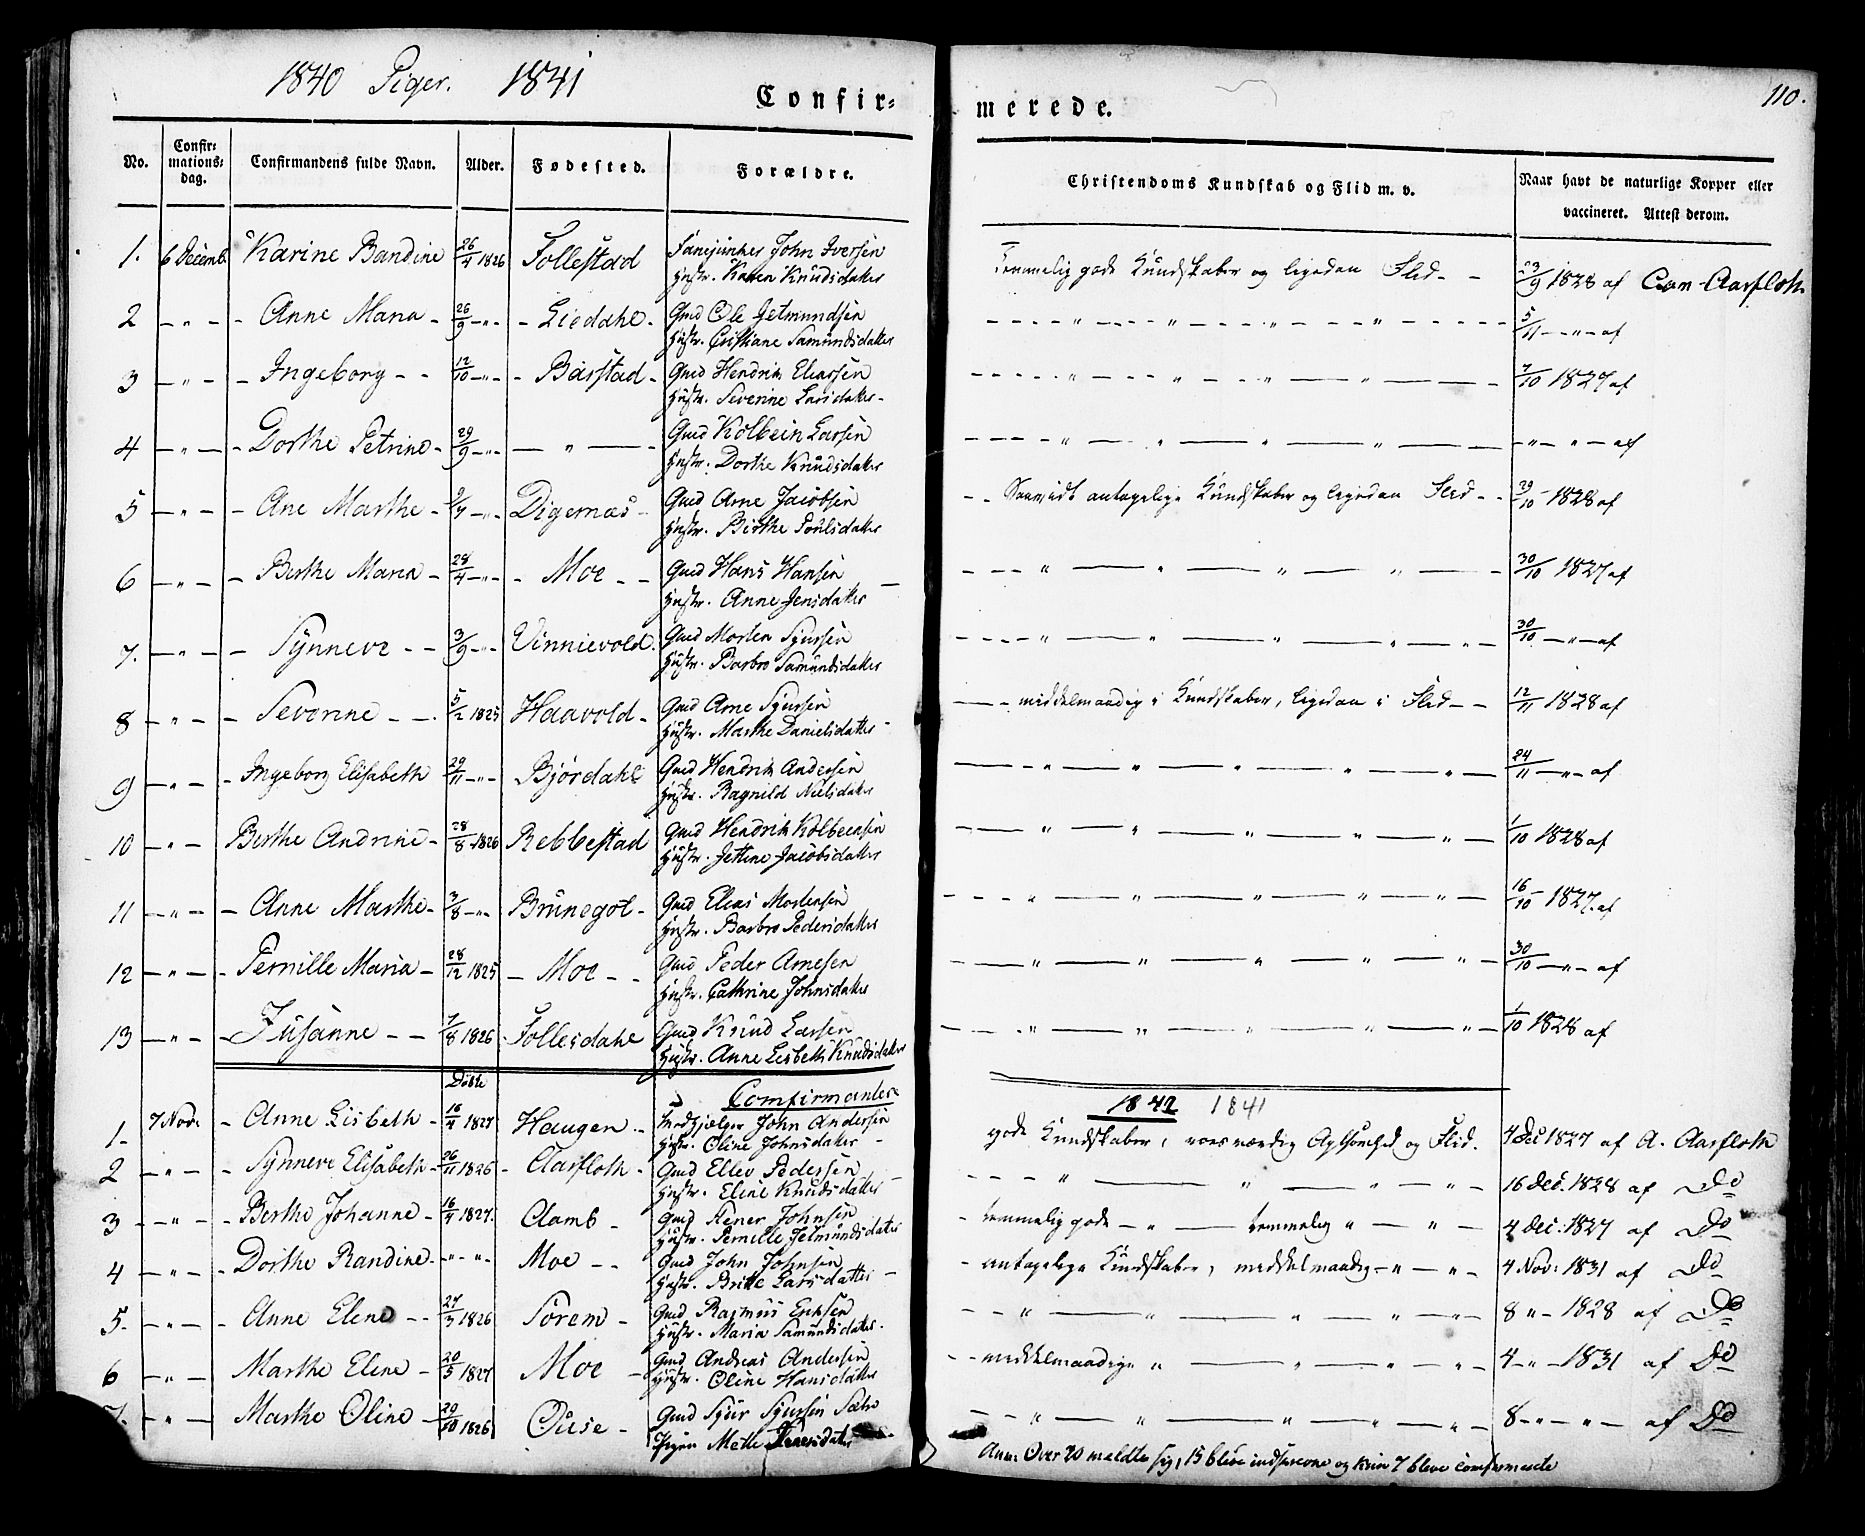 1840 Piger. 1841
Confir=
merede.
110.
No.
Confir=
mations=
dag.
Confirmandens fulde Navn.
Alder.
Fødested.
Forældre.
Christendoms Kundskab og Flid m. v.
Naar havt de naturlige Kopper eller
vaccineret. Attest derom.
1. 6 Decemb. Karine Bandine 26/4 1826 Follestad Fanejunker John Iversen
Hustr. Karen Knudsdatter
Temmelig gode Kundskaber og ligedan Flid - - 23/9 1828 af Aarfloth
2 - „ - - Anne Maria - 26/9 - „ - - Liedahl - Gmd Ole Jetmundsen
Hustr. Cristiane Samundsdatter
5/11 - „ - af
3 - „ - - Ingeborg - - 12/10 - „ - - Barstad - Gmd Hendrik Eliassen
Hustr. Severine Larsdatter -
7/10 1827 af
4 - „ - - Dorthe Petrine - 29/9 - „ - - „ - Gmd Kolbein Larsen
Hustr. Dorthe Knudsdatter
- „ - „ - af
5 - „ - - Ane Marthe - - „ - Digernæs - Gmd Arne Jacobsen
Hustr. Birthe Poulsdatter
- - antagelige Kundskaber og ligedan Flid - - 29/10 - 1828 af
6 - „ - - Berthe Maria - 28/4 - „ - - Moe - - Gmd Hans Hansen
Hustr. Anne Jensdatter
30/10 1827 af
7. - „ - - Synneve - - 3/9 - „ - Vinnievold. Gmd Morten Sjursen
Hustr. Barbro Samundsdatter
30/10 - „ - af
8 - „ - - Severine - - . 5/2 1825 Haavold - Gmd Arne Sjursen
Hustr. Marthe Danielsdatter -
- - middelmaadig i Kundskaber, ligedan i Flid - - 12/11 1828 af
9 - „ - - Ingeborg Elisabeth 29/11 - „ - Bjørdahl Gmd Hendrik Andersen
Hustr. Ragnild Nielsdatter
24/11 - „ - af
10 - „ - Berthe Andrine - 28/8 - 1826 Rebbestad Gmd Hendrik Kolbeensen
Hustr. Jettine Jacobsdatter
1/10 1828 af
11 - „ - - Anne Marthe - 3/8 - „ - Brunegot - Gmd Elias Mortensen
Hustr. Barbro Pedersdatter
16/10 - 1827. af
12 - „ - - Pernille Maria - 28/12 1825 - Moe - - Gmd Peder Arnesen
Hustr. Cathrine Johnsdatter
30/10 - „ - af
13 - „ - - Susanne - - 7/8 1826 Follesdahl Gmd Knud Larsen
Hustr. Anne Lisbeth Knudsdatter
1/10 1828 af
Døbte
Comfirmanter
1842 1841
1. 7 Nov: - Anne Lisbeth - 16/4 1827 Haugen - John Andersen
Hustr. Oline Johnsdatter -
gode Kundskaber, roesværdig Agtsomhed og Flid. 4 Dec 1827 af A. Aarfloth
2 - „ - - Synneve Elisabeth - 26/11 1826 - Aarfloth - Gmd Ellev Pedersen
Hustr. Eline Knudsdatter -
16 dec. 1828 af Do
3 - „ - - Berthe Johanne - 16/4 1827. Aamb - Gmd Johnsen
Hustr. Pernille Jetmundsdatter
- temmelig gode - „ - temmelig „ - „ - 4 dec: 1827 af Do
4 - „ - - Dorthe Randine - „ - „ - Moe - - Gmd John Johnsen
Hustr. Britte Larsdatter -
- antagelige Kundskaber, middelmaadig - „ - „ - 4 Nov: 1831 af Do
5. - „ - - Anne Elene - - 27/3 1826 Sørem - Gmd Rasmus Eriksen
Hustr. Maria Samundsdatter.
8 „ - 1828 af Do
6 - „ - Marthe Elene - 20/5 1827 Moe - Gmd Andreas Andersen
Hustr. Oline Hansdatter
- - middelmaadige „ - 4 - „ - 1831 af Do
7. - „ - Marthe Oline - 29/10 1826 Ouse - Gmd Sjur Sjursen Sætre
Pigen Mette
8 - „ - „ - af Do
Anm: Over 20 meldte sig, 15 bleve indskrevne og kun 7 bleve comfirmerede